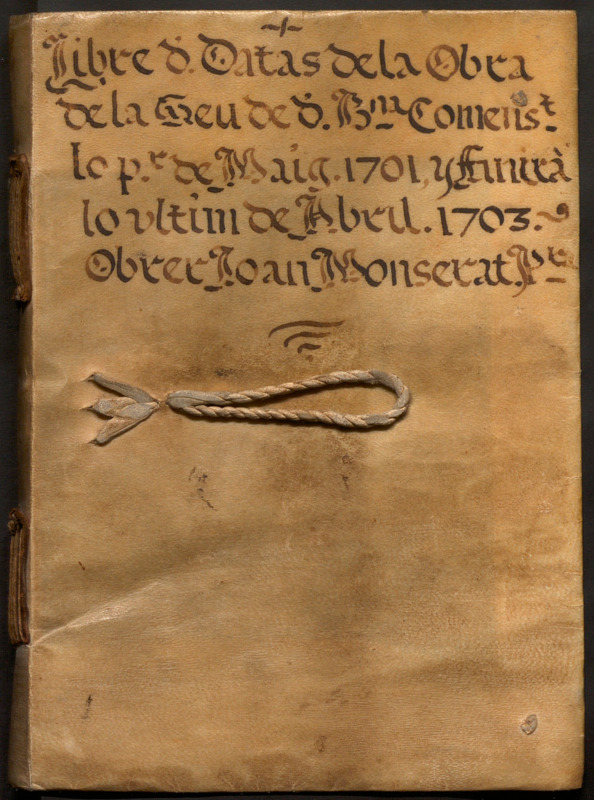 Llibre d̄. Datas de la Obra
de la Seu de d̄. Bna Comenst.
lo p.r de Maig. 1701, y Finirà
lo ultim de Abril. 1703.
Obrer Joan Monserat. Pre